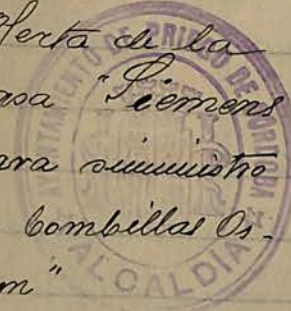 Oferta de la
casa "Siemens
para suministro
bombillas Os-
ram"
AYUNTAMIENTO DE PRIEGO DE CORDOBA
ALCALDIA